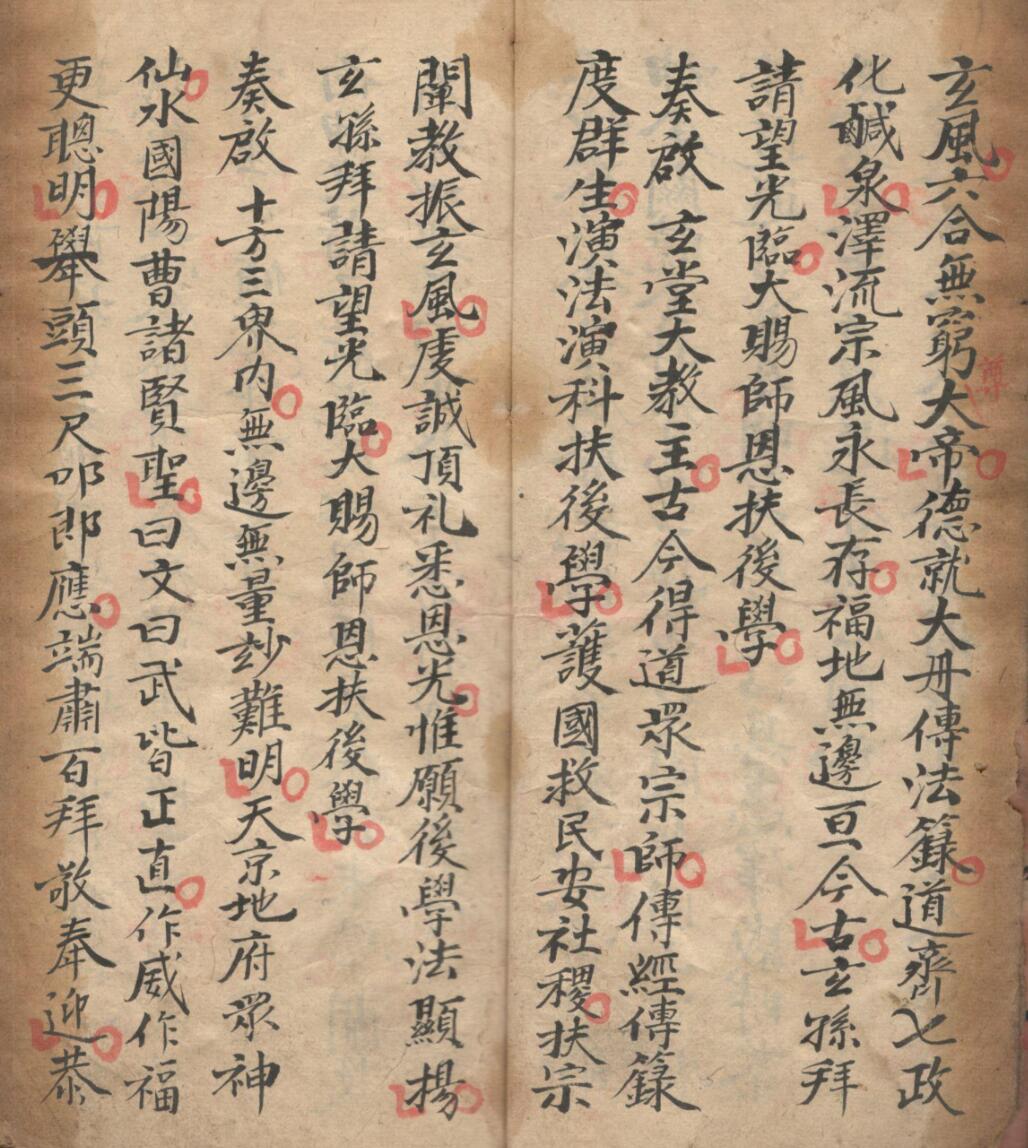 玄風六合無窮大帝德就大丹傳法籙道齊七政
化鹹泉澤流宗風永長存福地無邊亘今古玄孫拜
請望光臨大賜師恩扶後學
奏啟 玄堂大教主古今得道眾宗師傳經傳籙
度群生演法演科扶後學護國救民安社稷扶宗
闡教振玄風虔誠頂礼悉恩光惟願後學法顯揚
玄孫拜請望光臨大賜師恩扶後學
奏啟 十方三界內無邊無量妙難明天京地府眾神
仙水國陽曹諸賢聖曰文曰武皆正直作威作福
更聰明舉頭三尺叩即應端肅百拜敬奉迎恭